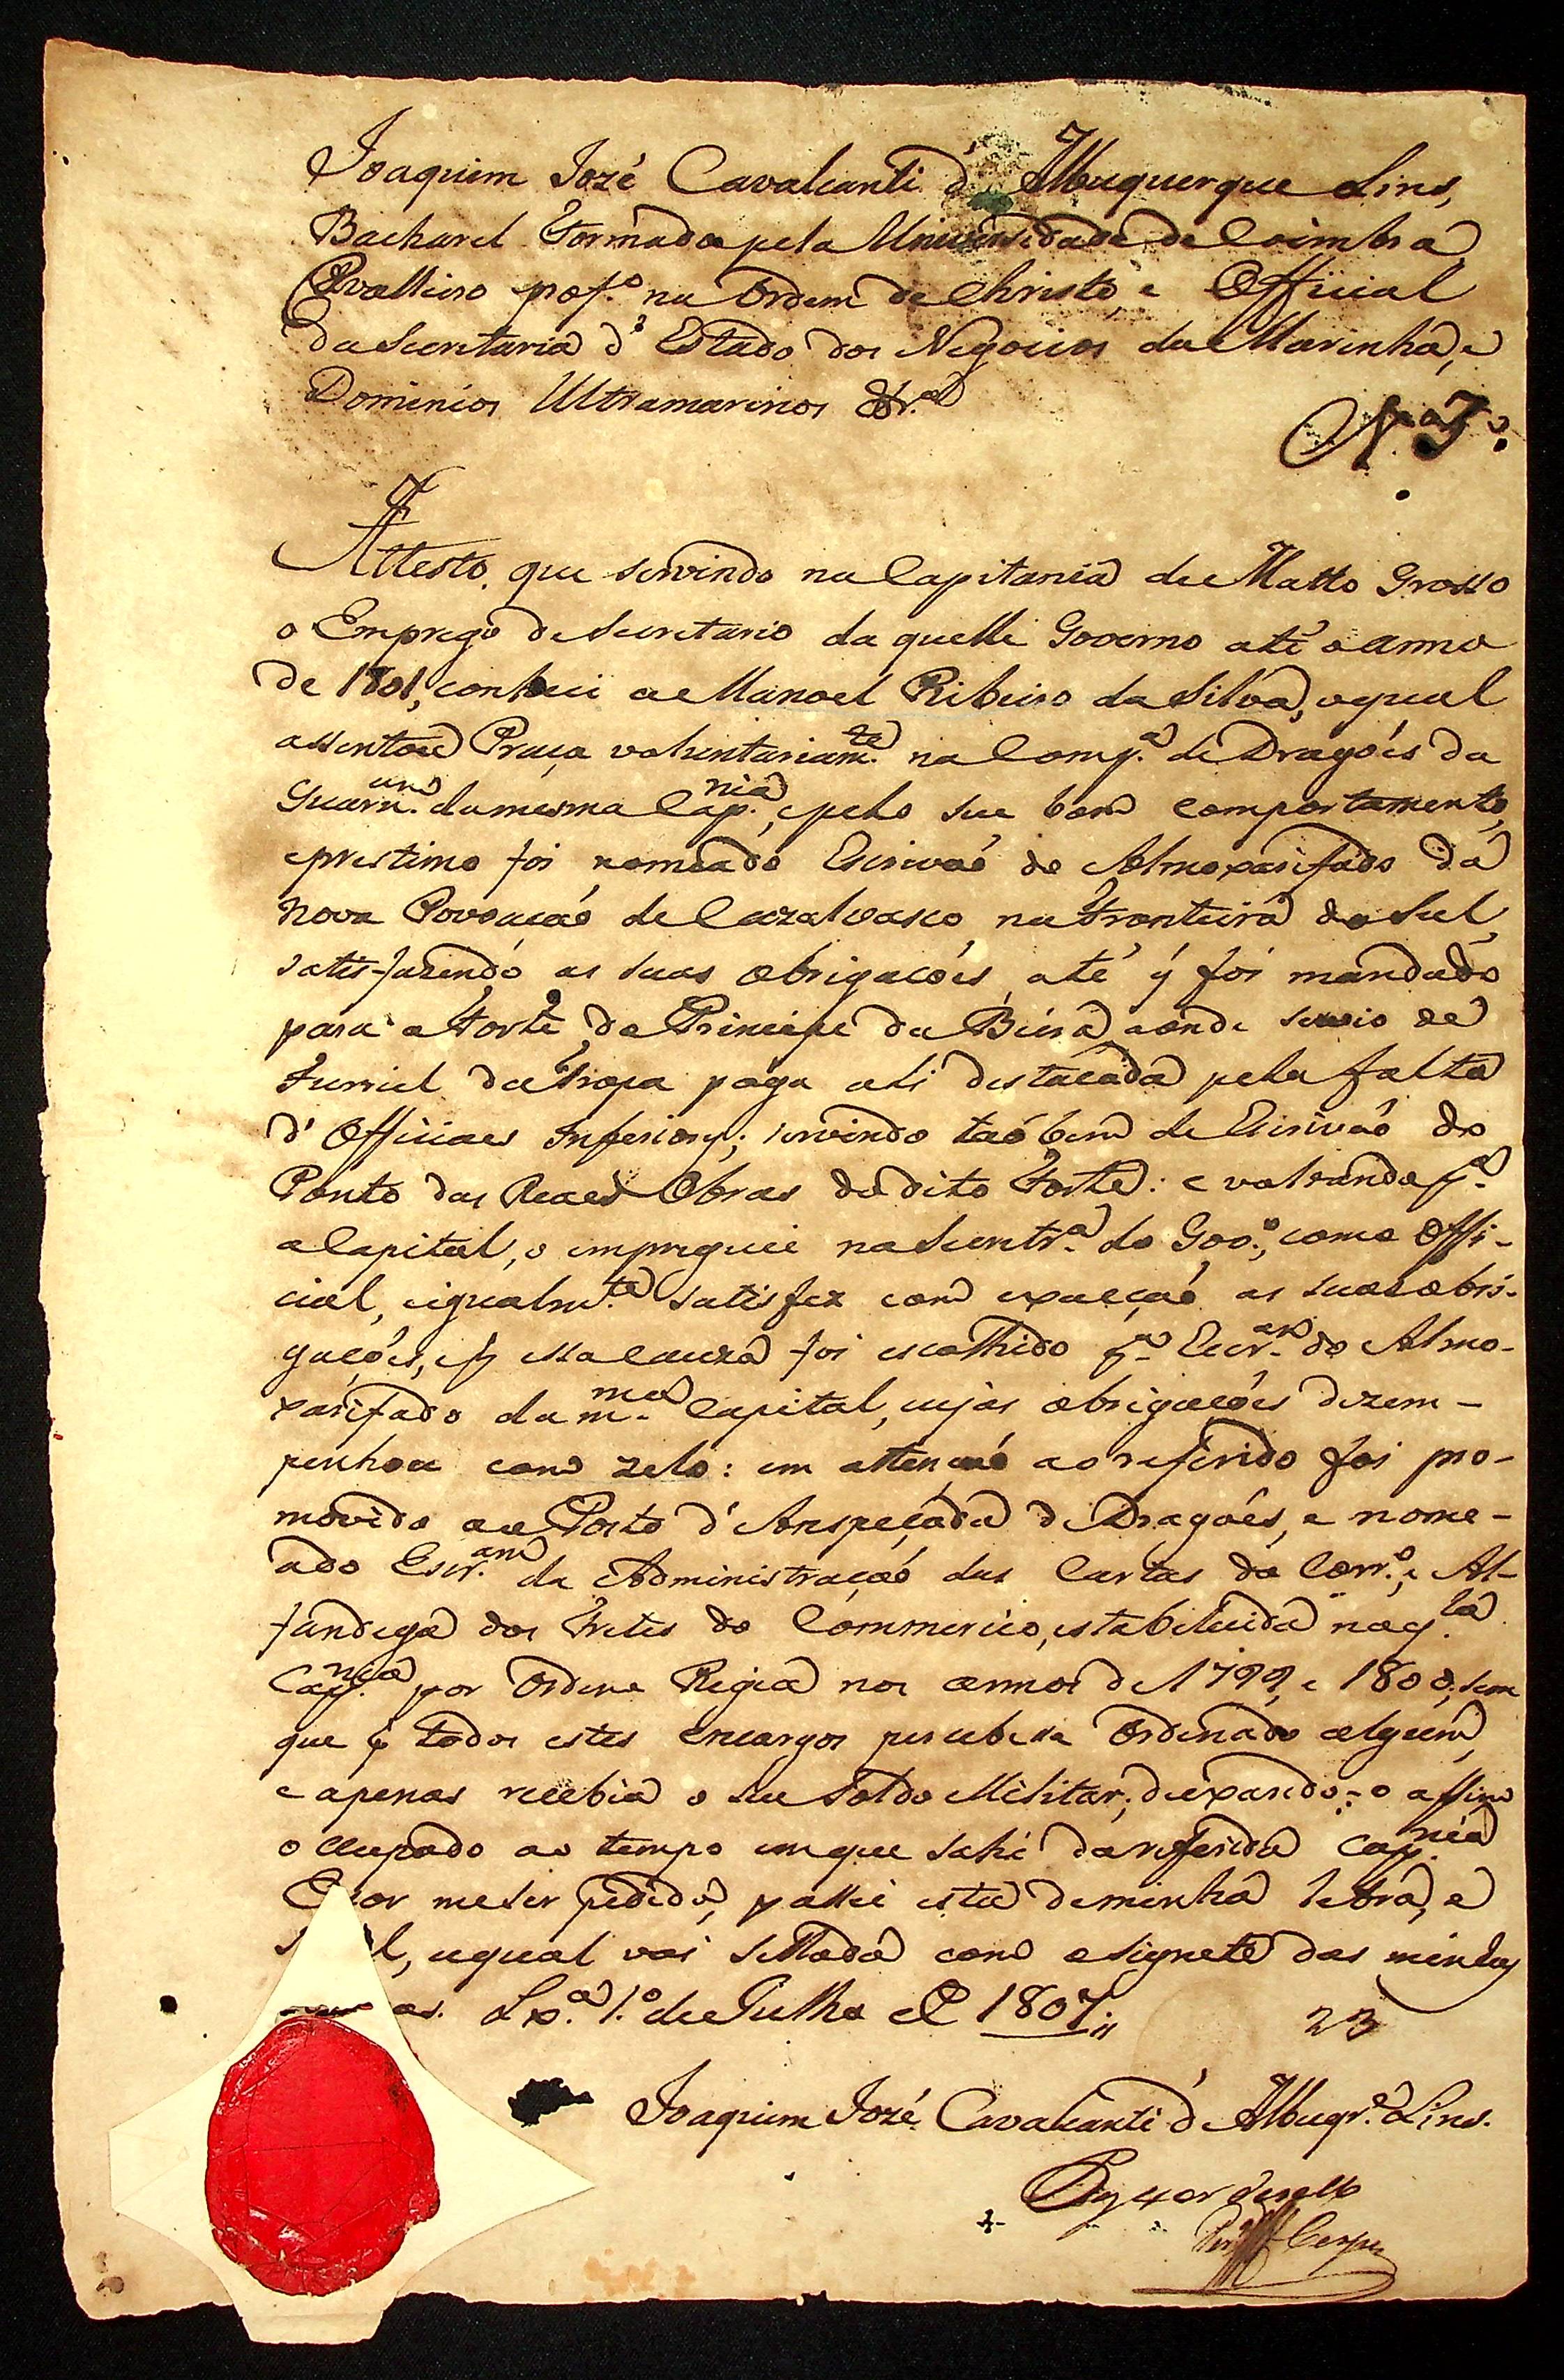 Joaquim Jozé Cavalcanti d'Albuquerque Lins,
Bacharel Formado pela Universidade de Coimbra,
Cavalleiro prof.º na Ordem de Christo, e Official
da Secretaria d'Estado dos Negocios da Marinha, e
Dominios Ultramarinos &r.ª
N.
Attesto, que servindo na Capitania de Matto Grosso
o Emprego de Secretario daquelle Governo até o anno
de 1801, conheci a Manoel Ribeiro da Silva, o qual
assentou Praça voluntariam.te na Comp.ª de Dragoẽs da
Guarn.am da mesma Cap.nia, e pelo seu bom comportamento,
e prestimo foi nomeado Escrivaõ do Almoxarifado da
nova Povoaçaõ de Cazalvasco na Fronteira do Sul,
satisfazendo as suas obrigaçoẽs até q foi mandado
para o Forte do Principe da Beira, aonde servio de
Furriel da Tropa paga ali destacada pela falta
d'Officiaes Inferiores; servindo taõbem de Escrivaõ do
Ponto das Reaes Obras do dito Forte: e voltando p.ª
a Capital, o empreguei na Secretr.ª do Gov.º, como Offi-
cial, e igualm.te satisfez com exacçaõ as suas obri-
gaçoẽs, e p essa cauza foi escolhido p.ª Escr.am do Almo-
xarifado da m.ma Capital, cujas obrigaçoẽs dezem-
penhou com zelo: em attençaõ ao referido foi pro-
movido ao Posto d'Anspeçada de Dragoẽs, e nome-
ado Escr.am da Administraçaõ das Cartas do Corr.º, e Al-
fandega dos Fretes do Commercio, estabelecida naq.la
Cap.nia por Ordem Regia nos annos de 1799, e 1800, sem
que p todos estes encargos percebesse Ordenado algum,
e apenas recebia o seu Soldo Militar; deixando-o assim
occupado ao tempo em que sahi da referida Cap.nia
E por me ser pedida, passei esta de minha letra, e
l, a qual vai sellada com o signete das minhas
as. Lx.ª 1.º de Julho de 1807.
23
Joaquim Jozé Cavalcanti d'Albuqr.e Lins.